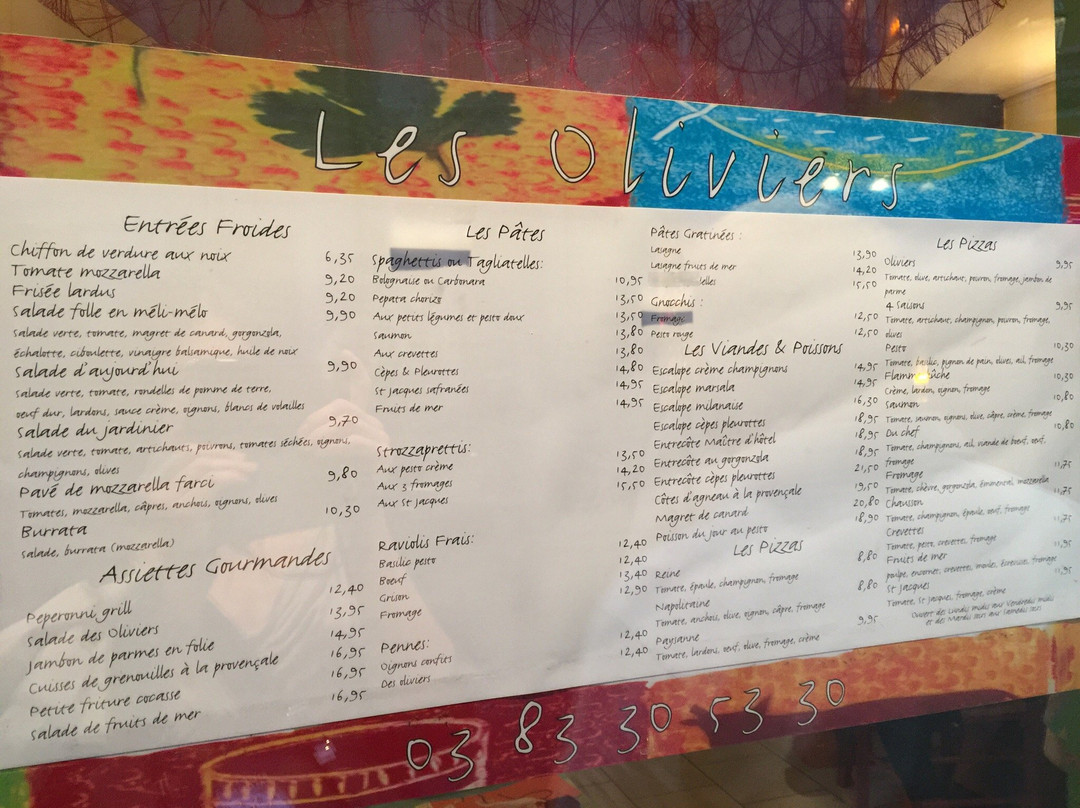 Les Oliviers
Entrées Froides
Chiffon de verdure aux noix 6,35
Tomate mozzarella 9,20
Frisée lardus 9,20
Salade folle en méli-mélo 9,90
Salade verte, tomate, magret de canard, gorgonzola,
échalotte, ciboulette, vinaigre balsamique, huile de noix
Salade d'aujourd'hui 9,90
Salade verte, tomate, rondelles de pomme de terre,
oeuf dur, lardons, sauce crème, oignons, blancs de volailles
Salade du jardinier 9,70
Salade verte, tomate, artichauts, poivrons, tomates séchées, oignons,
champignons, olives
Pavé de mozzarella farci 9,80
Tomates, mozzarella, câpres, anchois, oignons, olives
Burrata 10,30
Salade, burrata (mozzarella)
Assiettes Gourmandes
Peperonni grill 12,40
Salade des Oliviers 13,95
Jambon de parmes en folie 14,95
Cuisses de grenouilles à la provençale 16,95
Petite friture cocasse 16,95
Salade de fruits de mer 16,95
Les Pâtes
Spaghettis ou Tagliatelles:
Bolognaise ou Carbonara 10,95
Pepata chorizo 13,50
Aux petits légumes et pesto doux 13,50
Saumon 13,80
Aux crevettes 13,80
Cèpes & Pleurottes 14,80
St Jacques safranées 14,95
Fruits de mer 14,95
Strozzaprettis:
Aux pesto crème 13,50
Aux 3 fromages 14,20
Aux St Jacques 15,50
Raviolis Frais:
Basilic pesto 12,40
Boeuf 12,40
Grison 13,40
Fromage 12,90
Pennes:
Oignons confits 12,40
Des oliviers 12,40
Pâtes Gratinées :
Lasagne 13,90
Lasagne fruits de mer 14,20
elles 15,50
Gnocchis :
Fromage 12,50
Pesto rouge 12,50
Les Viandes & Poissons
Escalope crème champignons 14,95
Escalope marsala 14,95
Escalope milanaise 16,30
Escalope cèpes pleurottes 18,95
Entrecôte Maître d'hôtel 18,95
Entrecôte au gorgonzola 18,95
Entrecôte cèpes pleurottes 21,50
Côtes d'agneau à la provençale 19,50
Magret de canard 20,80
Poisson du jour au pesto 18,90
Les Pizzas
Reine 8,80
Tomate, épaule, champignon, fromage
Napolitaine 8,80
Tomate, anchois, olive, oignon, câpre, fromage
Paysanne 9,95
Tomate, lardons, oeuf, olive, fromage, crème
Les Pizzas
Oliviers 9,95
Tomate, olive, artichaut, poivron, fromage, jambon de
parme
4 Saisons 9,95
Tomate, artichaut, champignon, poivron, fromage,
olives
Pesto 10,30
Tomate, basilic, pignon de pain, olives, ail, fromage
10,30
Crème, lardon, oignon, fromage
Saumon 10,80
Tomate, saumon, oignons, olive, câpre, crème, fromage
Du chef 10,80
Tomate, champignons, ail, viande de boeuf, oeuf,
fromage
Fromage 11,75
Tomate, chèvre, gorgonzola, emmental, mozzarella
Chausson 11,75
Tomate, champignon, épaule, oeuf, fromage
Crevettes 11,75
Tomate, pesto, crevette, fromage
Fruits de mer 11,95
poulpe, encornet, crevette, moules, écrevisse, fromage
St Jacques 11,95
Tomate, St Jacques, fromage, crème
Ouvert de: Lundis midis aux Vendredis midis
et des Mardis soirs aux Samedis soirs
03 83 30 53 30